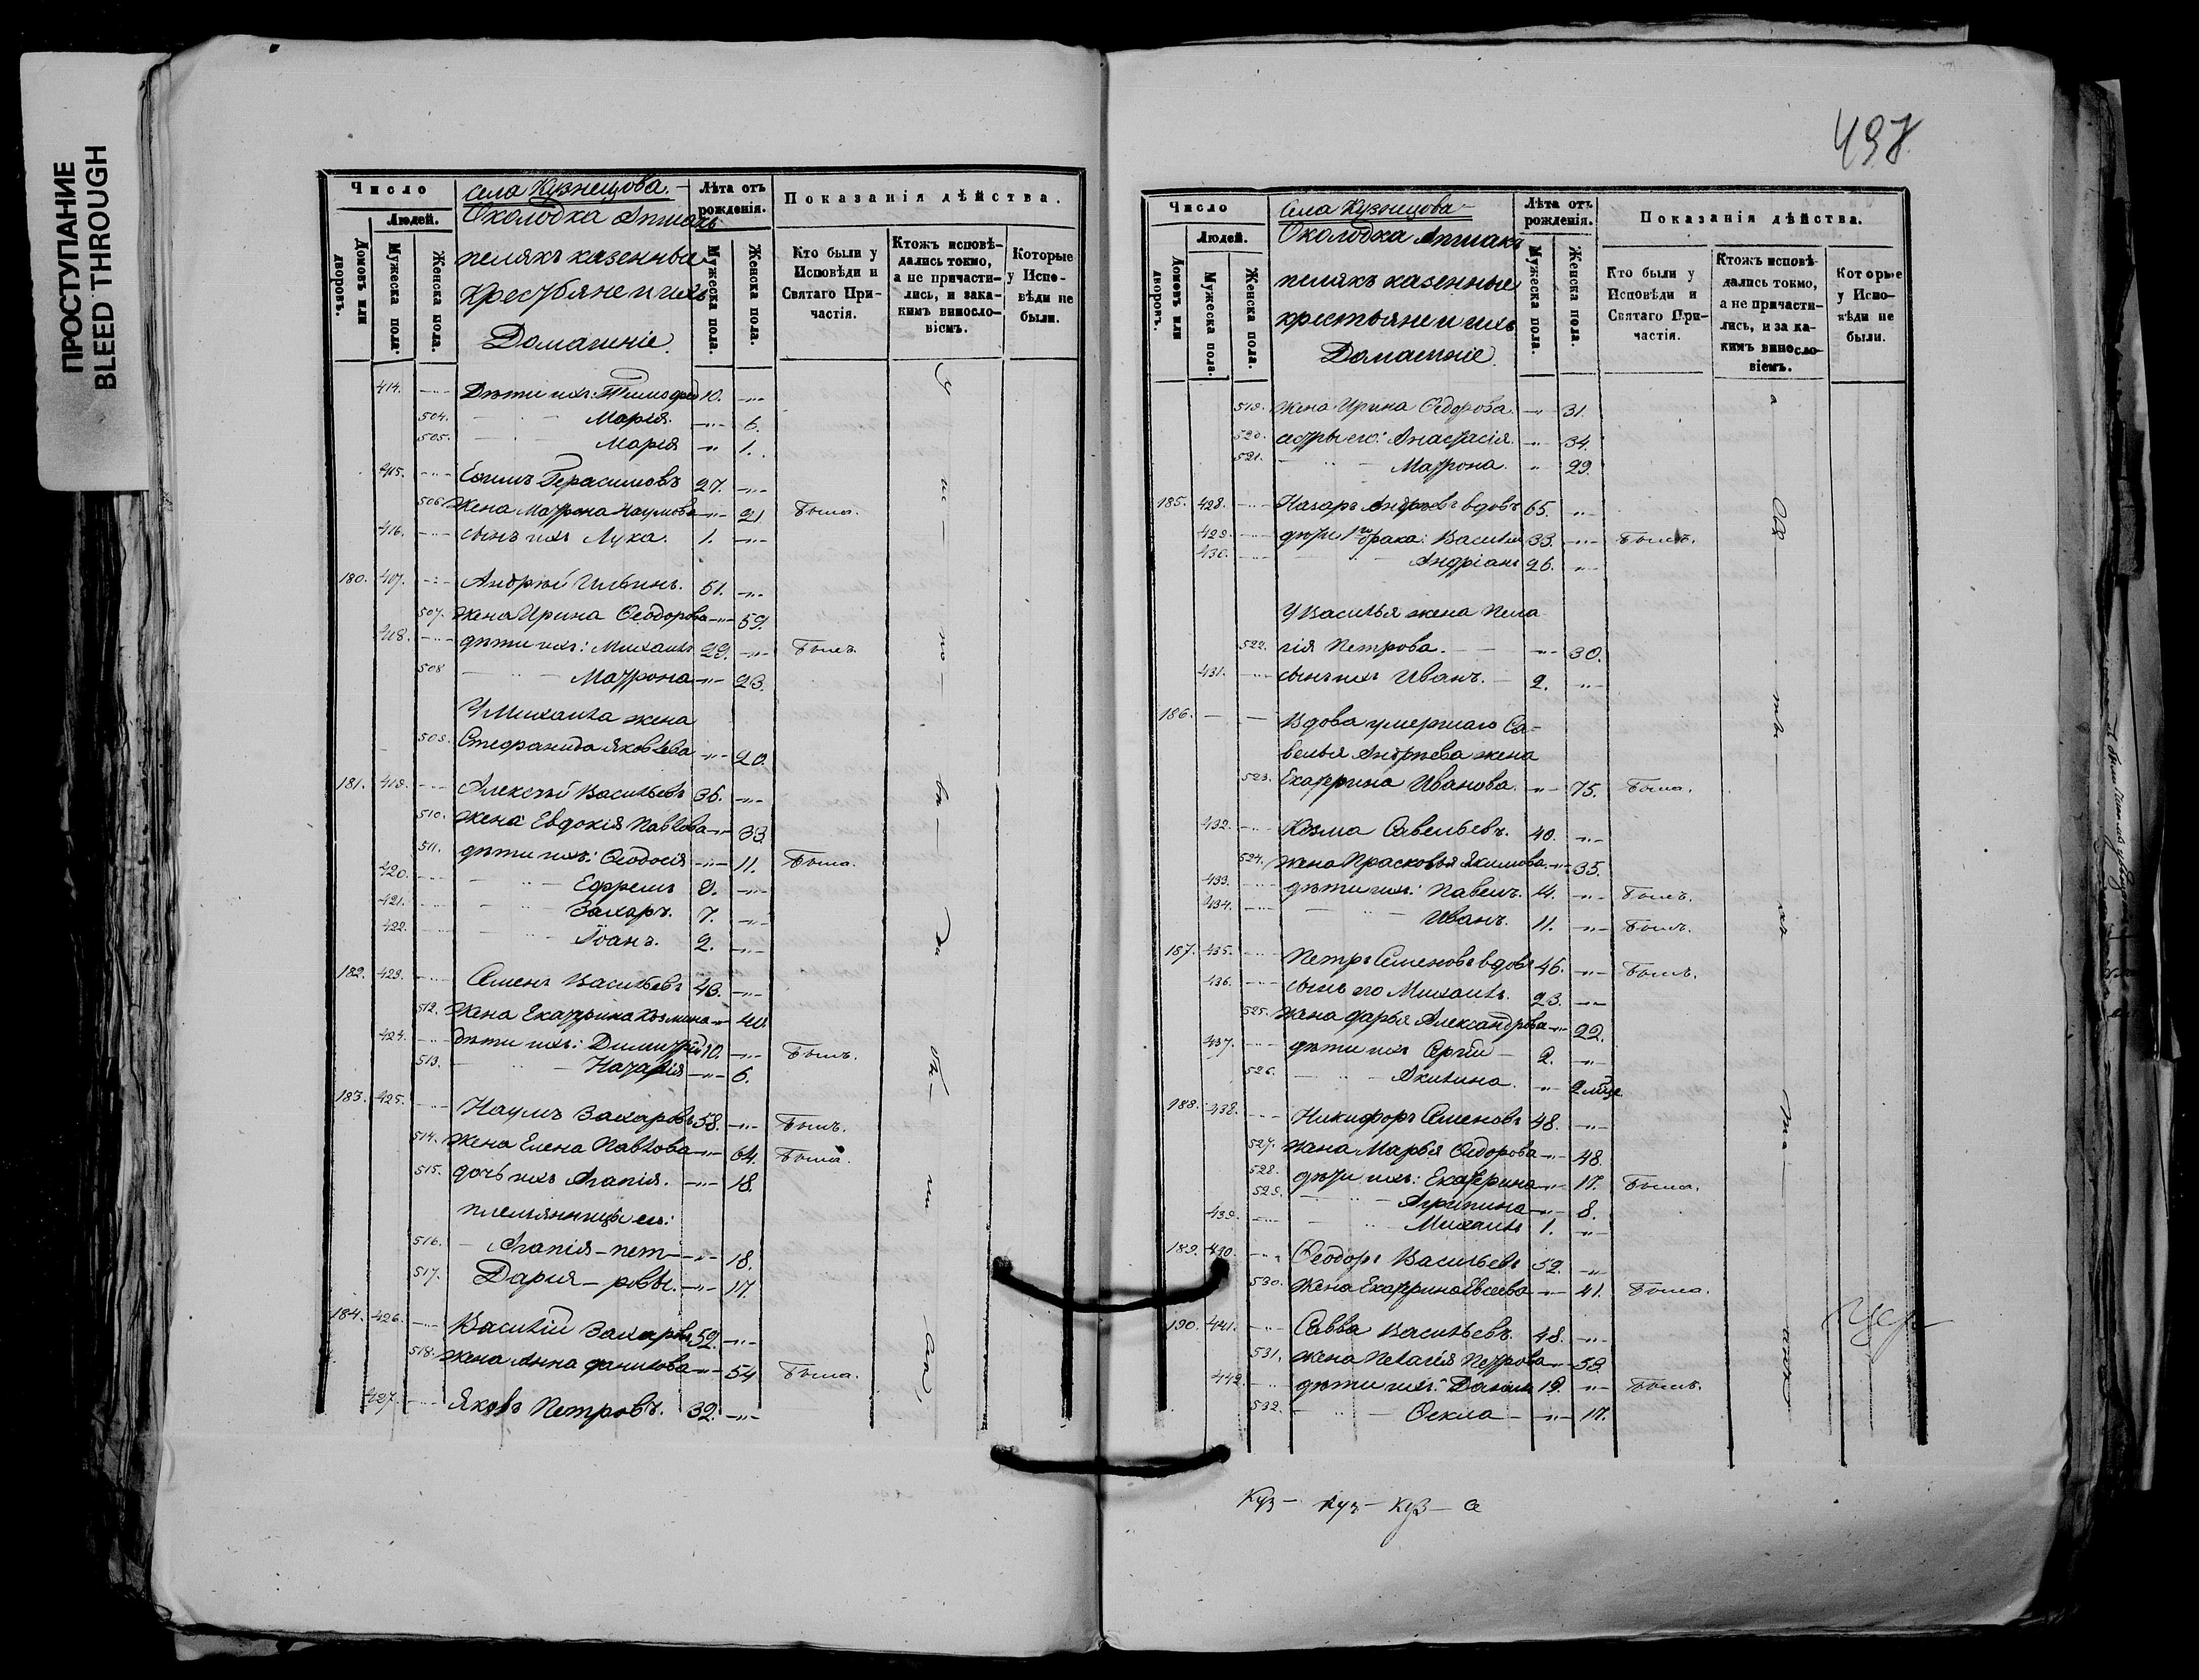 ПРОСТУПАНИЕ
BLEED THROUGH
Число
Людей.
Домовъ или дворовъ.
Мужеска пола.
Женска пола.
села Кузнецова.
Околодка
пеляхъ казенные
Крестьяне и ихъ
Домашніе.
Лѣта отъ рожденія.
Мужеска пола.
Женска пола.
Показанія дѣйства.
Кто были у Исповѣди и Святаго Причастія.
Ктожъ исповѣдались токмо, а не причастились, и за какимъ винословіемъ.
Которые у Исповѣди не были.
414. Дѣти ихъ: Тимофей 10.
504. Марія. 6.
505. Марія 1.
415. Ефимъ Герасимовъ 27.
506. Жена Матрона Наумова 21. Была.
416. сынъ ихъ Лука. 1.
180. 417. Андрей Ильинъ. 61.
507. Жена Ирина Ѳеодорова 59.
418. дѣти ихъ: Михаилъ 22. Былъ.
508 Матрона 23.
У Михаила жена
509. Стефанида Яковлева 20.
181. 419. Алексѣй Васильевъ 36.
510. Жена Евдокія Павлова 33.
511. дѣти ихъ: Ѳеодосія 11. Была.
420. Ефремъ 9.
421. Захаръ. 7.
422. Іоанъ. 2.
182. 423. Семенъ Васильевъ 43.
512. Жена Екатерина Козмина 40.
424. дѣти ихъ: Димитрій 10. Былъ.
513. Наталія 6.
183. 425. Наумъ Захаровъ 58. Былъ.
514. Жена Елена Павлова 64. Была.
515. дочь ихъ Агапія. 18.
племянницы ея:
516. Агапія – пет- 18.
517. Дарія – ровы. 17.
184. 426. Василій Захаровъ 52.
518. Жена Анна Данилова 54 Была.
427. Яковъ Петровъ. 32.
498
Число
Людей.
Домовъ или дворовъ.
Мужеска пола.
Женска пола.
Села Кузнецова
Околодка
пеляхъ казенные
крестьяне и ихъ
Домашніе.
Лѣта отъ рожденія.
Мужеска пола.
Женска пола.
Показанія дѣйства.
Кто были у Исповѣди и Святаго Причастія.
Ктожъ исповѣдались токмо, а не причастились, и за какимъ винословіемъ.
Которые у Исповѣди не были.
519. жена Ирина Ѳедорова. 31.
520. сестры его: Анастасія. 34.
521. Матрона. 29.
185. 428. Назаръ Андреевъ вдовъ 65.
429. дѣти 1го брака: Василій 33. Былъ.
430. Андріанъ 26.
У Василья жена Пела
522. гія Петрова. 30.
431. сынъ ихъ Иванъ. 2.
186. Вдова умершаго Са-
велья Андрѣева жена
523. Екатерина Иванова. 75. Была.
432. Козма Савельевъ. 40.
524. жена Прасковья Якимова. 35.
433. дѣти ихъ: Павелъ. 14. Былъ.
434. Иванъ. 11. Былъ.
187. 435. Петръ Семеновъ вдовъ 46. Былъ.
436. сынъ его Михаилъ. 23.
525. жена Дарья Александрова 22.
437. дѣти ихъ Сергій 2.
526. Акилина. 2 мѣсяц
188. 438. Никифоръ Семеновъ 48.
527. жена Марья Ѳедорова 48.
528. дѣти ихъ: Екатерина 17. Была.
529. Агрипина 8.
439. Михаилъ 1.
189. 440. Ѳеодоръ Васильевъ 52.
530. Жена Екатерина Евсеева 41. Была.
190. 441. Савва Васильевъ. 48.
531. жена Пелагія Петрова 50.
442. дѣти ихъ: Данилъ 19. Былъ.
532. Ѳекла 17.
Куз – Куз – Куз –